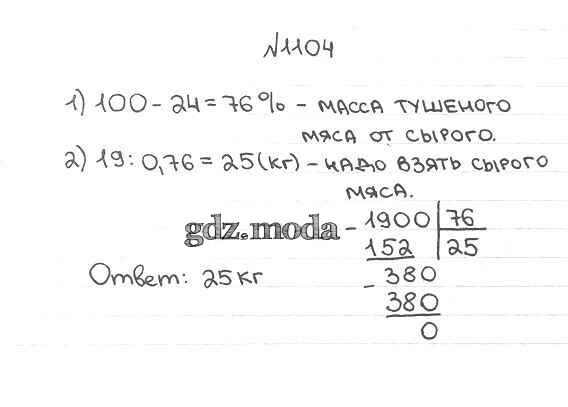 N1104
1) 100 - 24 = 76% - масса тушеного
мяса от сырого.
2) 19 : 0,76 = 25 (кг) - надо взять сырого
мяса.
gdz.moda
- 1900 | 76
152 | 25
Ответ: 25 кг
- 380
380
0